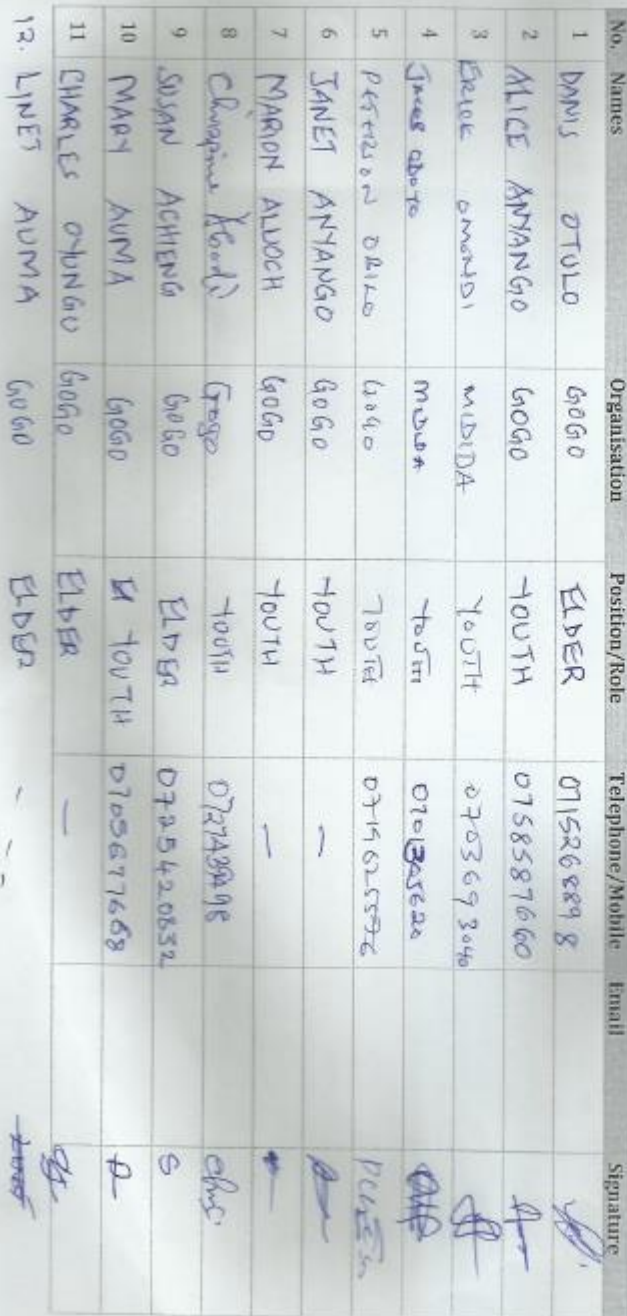 No. Names Organisation Position/Role Telephone/Mobile Email Signature
1 DANIS OTULO GOGO ELDER 0715268898
2 ALICE ANYANGO GOGO YOUTH 0758587660
3 ERICK OMONDI MIDIDA YOUTH 0703693040
4 ODOYO YOUTH
5 GOGO YOUTH
6 JANET ANYANGO GOGO YOUTH –
7 MARION ALUOCH GOGO YOUTH –
8 Gogo YOUTH
9 SUSAN ACHIENG GOGO ELDER 0725420832 S
10 MARY AUMA GOGO YOUTH 0705677658
11 CHARLES OYUNGU GOGO ELDER –
12. LINET AUMA GOGO ELDER - - -